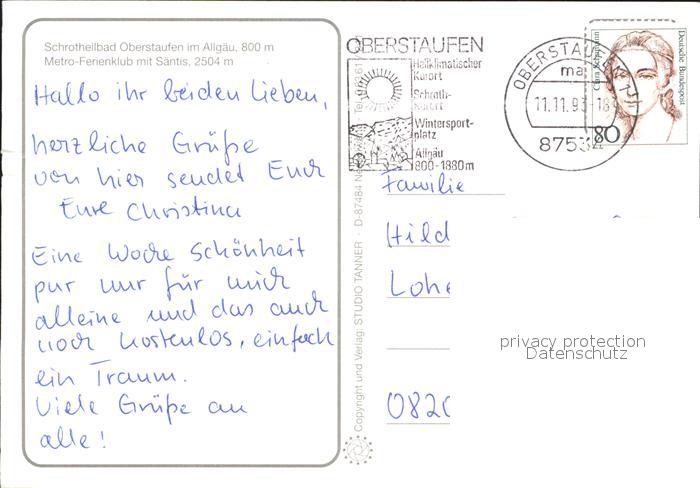 Schrotheilbad Oberstaufen im Allgäu, 800 m
Metro-Ferienklub mit Säntis, 2504 m
Hallo ihr beiden Lieben,
herzliche Grüße
von hier sendet Euch
Eure Christina
Eine Woche Schönheit
pur nur für mich
alleine und das auch
noch kostenlos, einfach
ein Traum.
Viele Grüße an
alle!
Copyright und Verlag: STUDIO TANNER · D-87484
OBERSTAUFEN
Heilklimatischer
Kurort
Schroth-
kurort
Wintersport-
platz
Allgäu
800-1880m
OBERSTAUFEN 1
ma
11.11.93-18
8753
Clara Schumann
Deutsche Bundespost
80
Familie
Hild
Lohe
082
privacy protection
Datenschutz